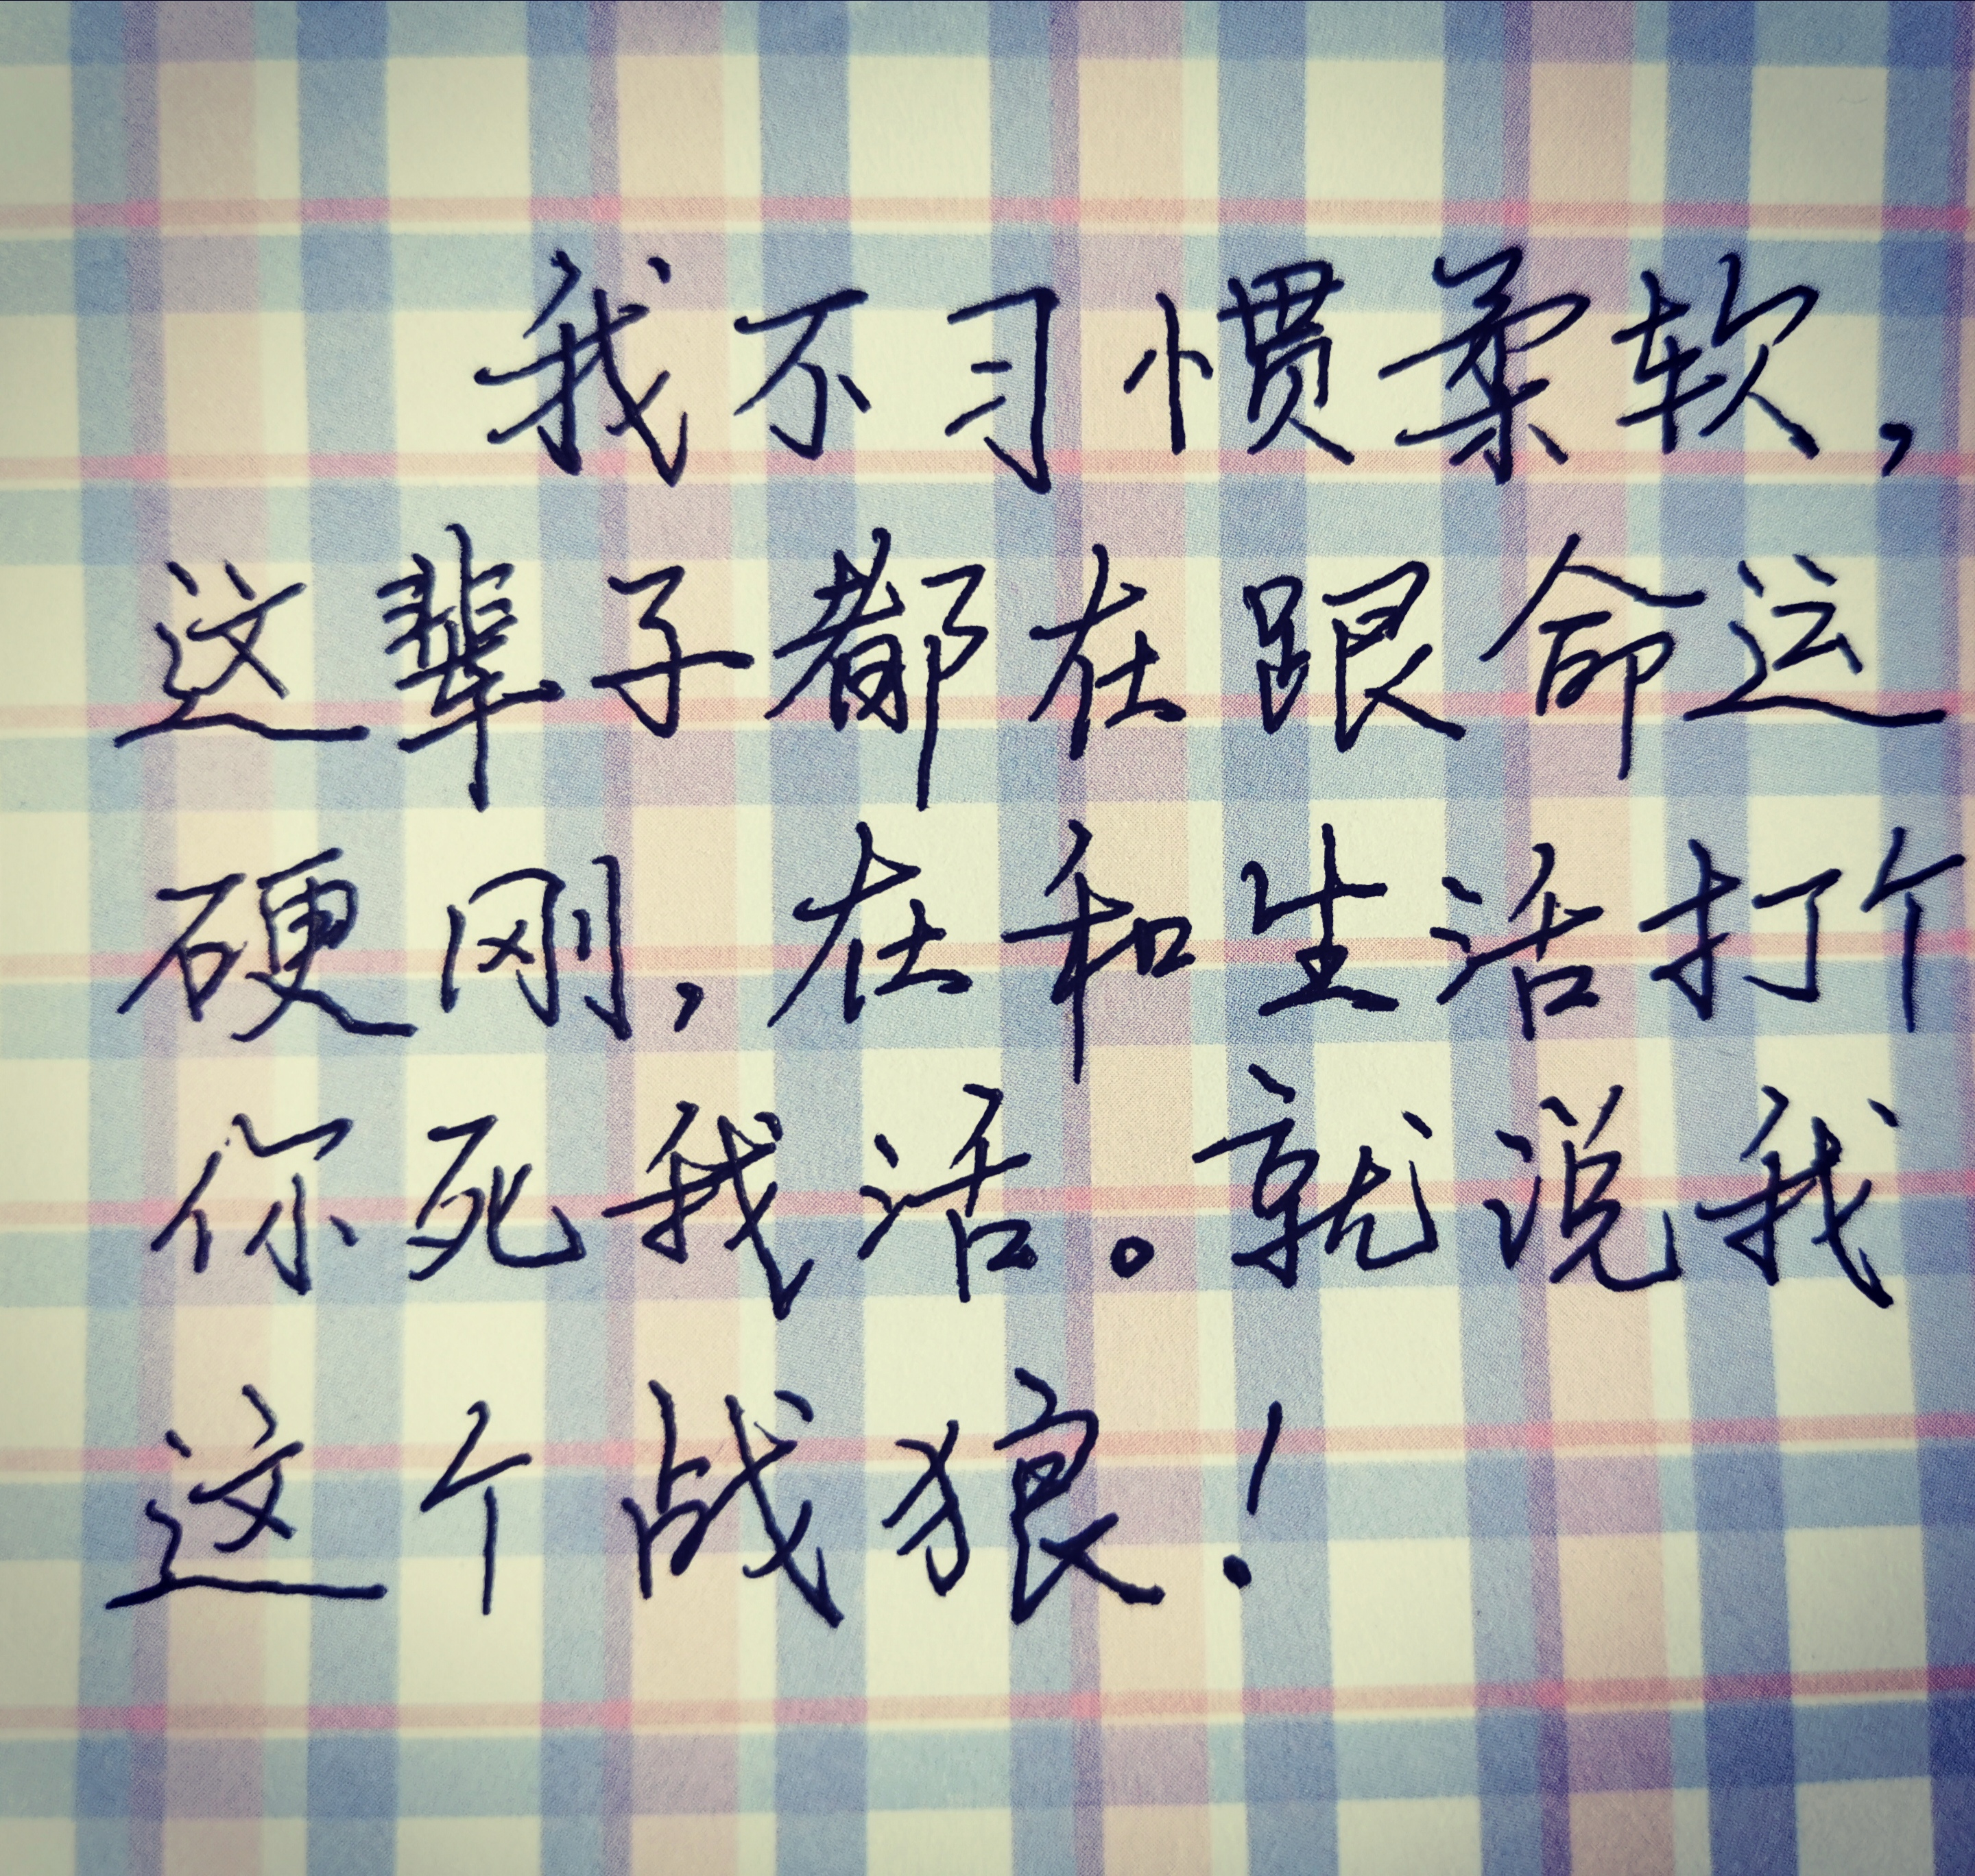 我不习惯柔软，
这辈子都在跟命运
硬刚，在和生活打个
你死我活。就说我
这个战狼！